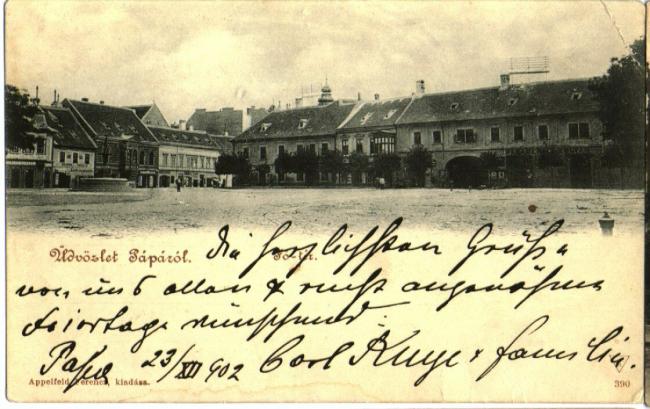 Üdvözlet Pápáról. Fő-tér.
die herzlichsten Grüße
von uns allen & recht angenehme
Feiertage wünschend
Papa 23/XII 902 Carl & Familie.
Appelfeld Ferencz, kiadása.
390